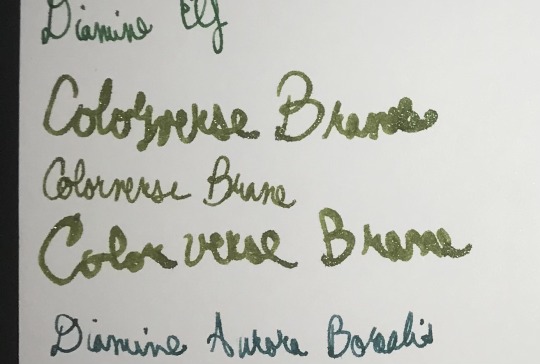 Diamine Elf
Colorverse Brane
Colorverse Brane
Color verse Brane
Diamine Aurora Borealis